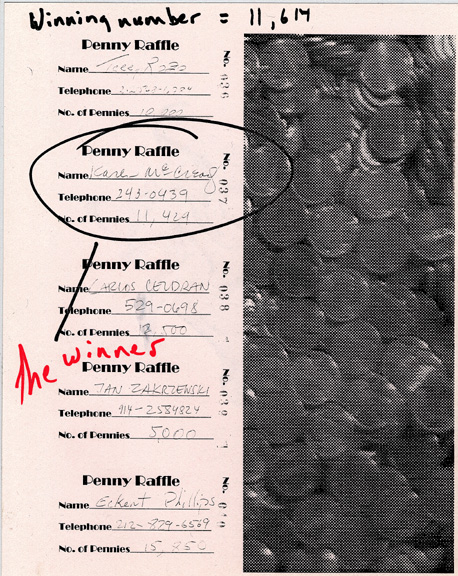 Winning number = 11,614
Penny Raffle
Name
Telephone
No. of Pennies
No. 036
Penny Raffle
Name Karen McCready
Telephone 243-0439
No. of Pennies 11,424
No. 037
Penny Raffle
Name CARLOS CELDRAN
Telephone 529-0698
No. of Pennies 12,500
No. 038
the winner
Penny Raffle
Name JAN ZAKRZENSKI
Telephone 914-2584824
No. of Pennies 5,000
No. 039
Penny Raffle
Name Eckert Phillips
Telephone 212-879-6569
No. of Pennies 15,850
No.